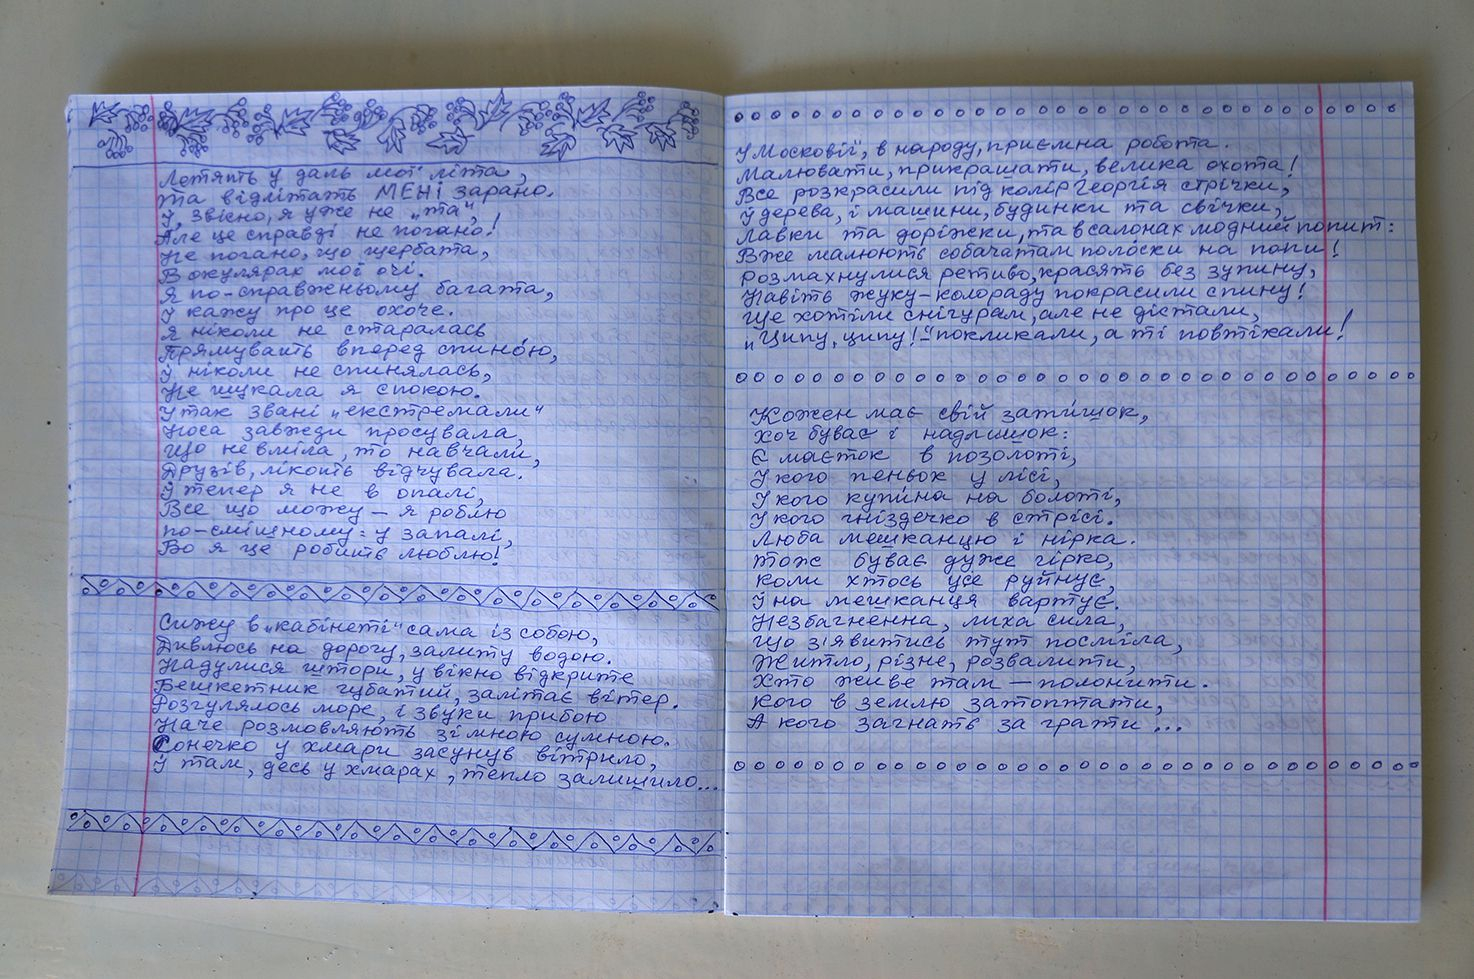 Летять у даль мої літа,
та відлітать МЕНІ зарано.
І, звісно, я уже не „та",
Але це справді не погано!
Не погано, що щербата,
В окулярах мої очі.
Я по-справжньому багата,
І кажу про це охоче.
Я ніколи не старалась
Прямувать вперед спино́ю,
І ніколи не спинялась,
Не шукала я спокою.
У так звані „екстремали"
Носа завжди просувала,
Що не вміла, то навчали,
Друзів, лікоть відчувала.
І тепер я не в опалі,
Все що можу – я роблю
по-смішному: у запалі,
Бо я це робить люблю!
Сижу в „кабінеті" сама із собою,
Дивлюсь на дорогу, залиту водою.
Надулися штори, у вікно відкрите
Бешкетник губатий, залітає вітер.
Розгулялось море, і звуки прибою
Наче розмовляють зі мною сумною.
Сонечко у хмари засунув вітрило,
І там, десь у хмарах, тепло залишило...
У Московії, в народу, приємна робота.
Малювати, прикрашати, велика охота!
Все розкрасили під колір Георгія стрічки,
І дерева, і машини, будинки та свічки,
Лавки та доріжки, та в салонах модний попит:
Вже малюють собачатам поло́ски на попи!
Розмахнулися ретиво, красять без зупину,
Навіть жуку-колораду покрасили спину!
Ще хотіли снігурам, але не дістали,
„Ципу, ципу!" – покликали, а ті повтікали!
Кожен має свій зати́шок,
Хоч буває і надлишок:
Є маєток в позолоті,
У кого пеньок у лісі,
У кого купи́на на болоті,
У кого гніздечко в стрісі.
Люба мешканцю і нірка.
Тож буває дуже гірко,
Коли хтось усе руйнує,
І на мешканця вартує.
Незбагненна, лиха сила,
Що з'явитись тут посміла,
Житло, різне, розвалити,
Хто живе там – полонити.
Кого в землю затоптати,
А кого загнать за грати...